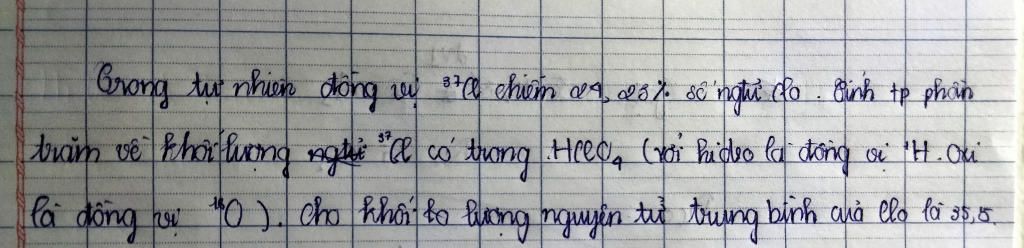 Trong tự nhiên đồng vị ³⁷Cl chiếm 24,23% số ngtử clo. Tính tp phần
trăm về khối lượng ³⁷Cl có trong HClO₄ (với hiđro là đồng vị ¹H. Oxi
là đồng vị ¹⁶O). Cho khối lượng nguyên tử trung bình của Clo là 35,5.